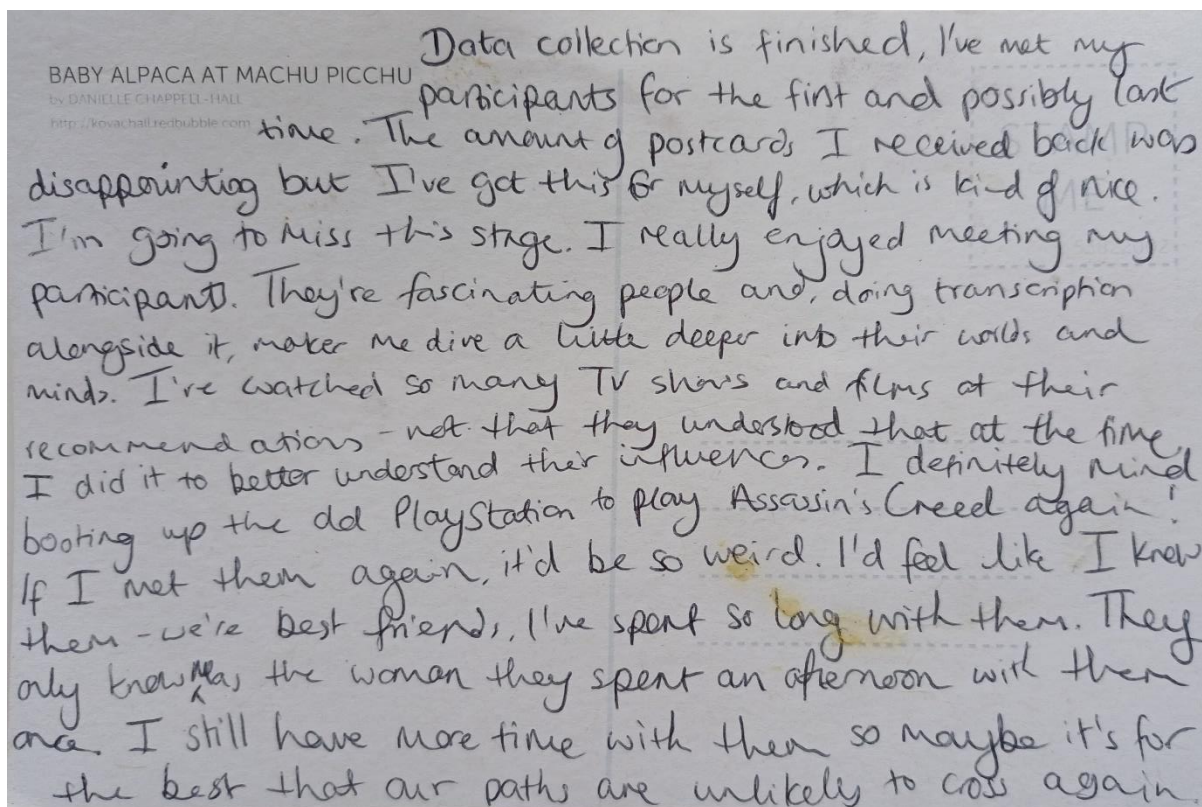 Data collection is finished, I've met my
BABY ALPACA AT MACHU PICCHU
by DANIELLE CHAPPELL-HALL
participants for the first and possibly last
http://kovachall.redbubble.com
time. The amount of postcards I received back was
disappointing but I've got this for myself, which is kind of nice.
I'm going to miss this stage. I really enjoyed meeting my
participants. They're fascinating people and, doing transcription
alongside it, makes me dive a little deeper into their worlds and
minds. I've watched so many TV shows and films at their
recommendations - not that they understood that at the time,
I did it to better understand their influences. I definitely mind
booting up the old PlayStation to play Assassin's Creed again!
If I met them again, it'd be so weird. I'd feel like I know
them - we're best friends, I've spent so long with them. They
only know me as the woman they spent an afternoon with them
once. I still have more time with them so maybe it's for
the best that our paths are unlikely to cross again